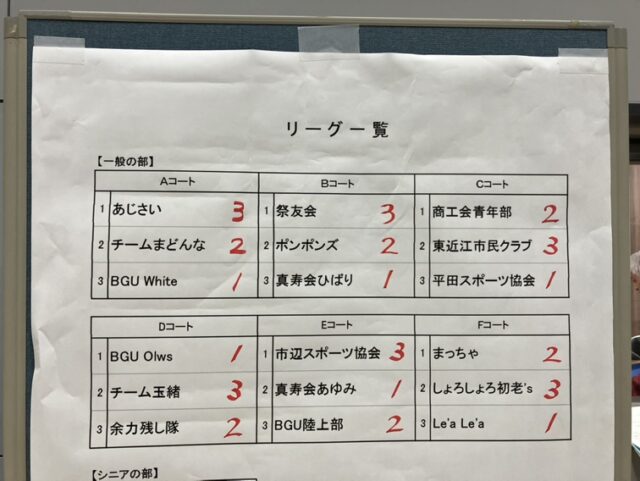 リーグ一覧
【一般の部】
Aコート Bコート Cコート
1 あじさい 3 1 祭友会 3 1 商工会青年部 2
2 チームまどんな 2 2 ポンポンズ 2 2 東近江市民クラブ 3
3 BGU White 1 3 真寿会ひばり 1 3 平田スポーツ協会 1
Dコート Eコート Fコート
1 BGU Olws 1 1 市辺スポーツ協会 3 1 まっちゃ 2
2 チーム玉緒 3 2 真寿会あゆみ 1 2 しょろしょろ初老's 3
3 余力残し隊 2 3 BGU陸上部 2 3 Le'a Le'a 1
【シニアの部】